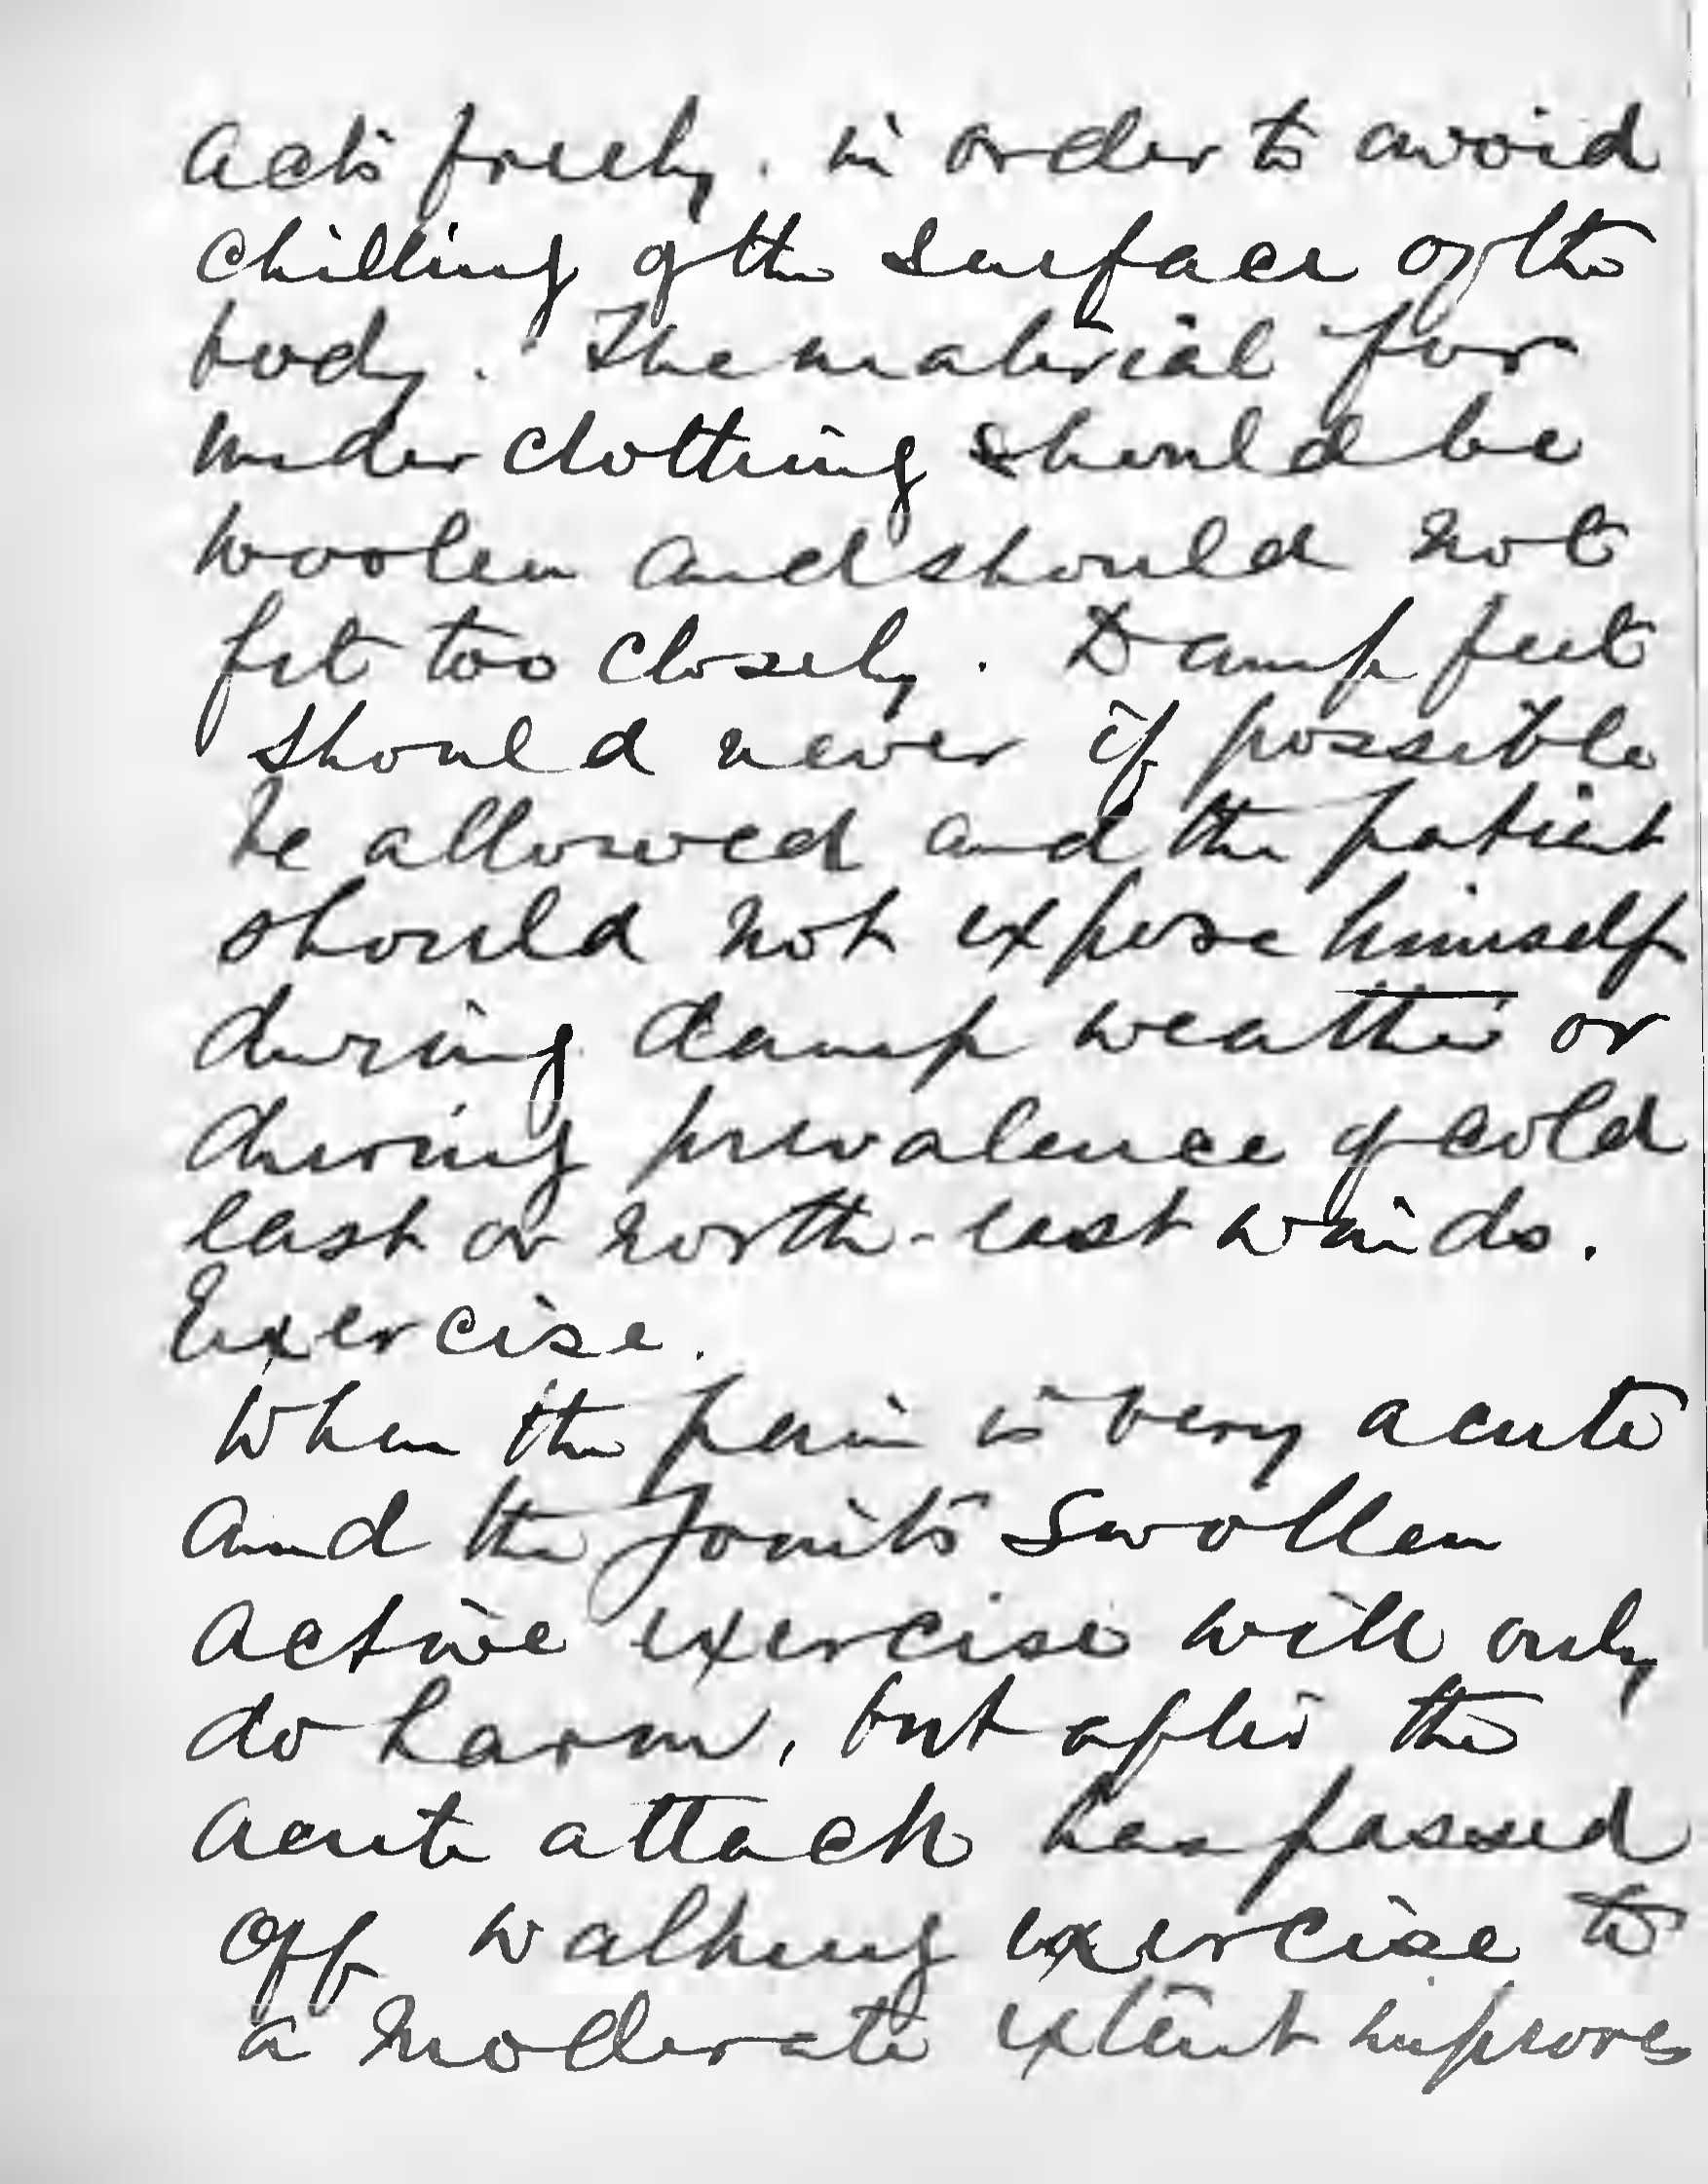 acts freely. in order to avoid
chilling of the surface of the
body. The material for
under clothing should be
woolen and should not
fit too closely. Damp feet
should never if possible
be allowed and the patient
should not expose himself
during damp weather or
during prevalence of cold
east or north-east winds.
Exercise.
When the pain is very acute
and the joints swollen
active exercise will only
do harm, but after the
acute attack has passed
off walking exercise to
a moderate extent improves